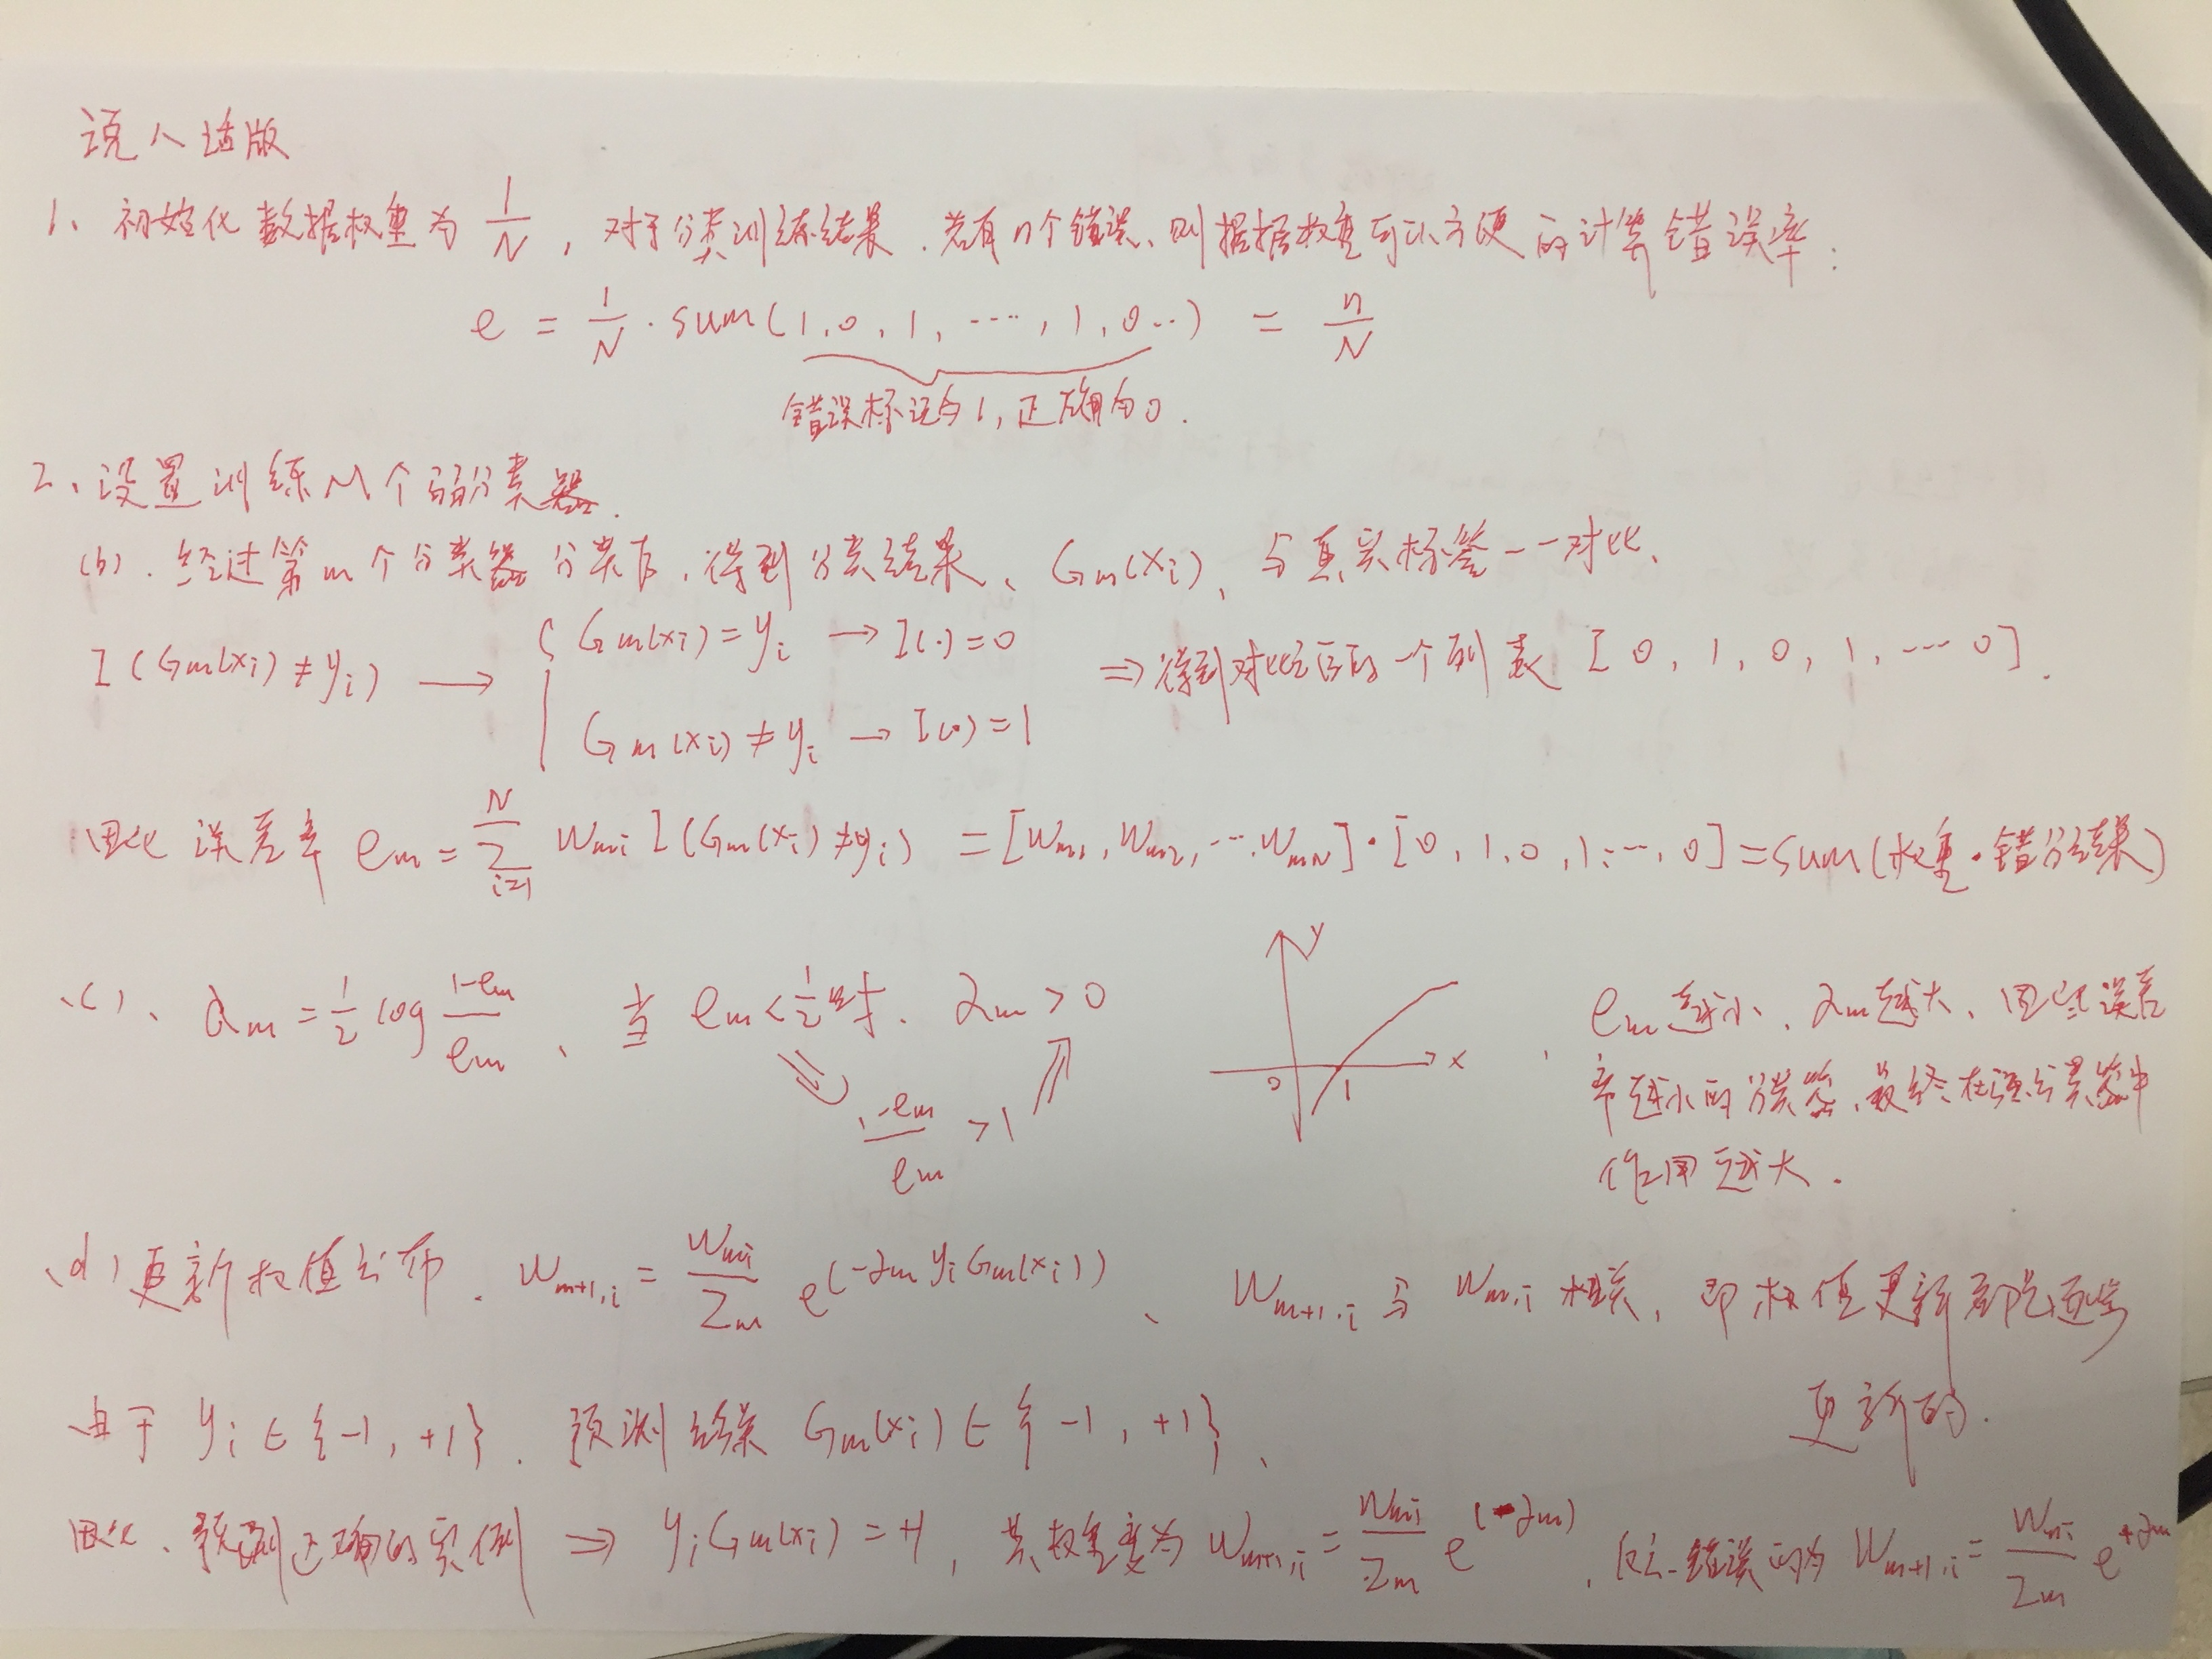 说人话版
1、初始化数据权重为 1/N，对于分类训练结果，若有n个错误，则根据权重可以方便的计算错误率：
e = 1/N · sum(1,0,1,…,1,0..) = n/N
错误标记为1,正确为0.
2、设置训练M个弱分类器.
(b). 经过第m个分类器分类后,得到分类结果、Gm(xi)、与真实标签一一对比、
Gm(xi) = yi → I(·)=0
I(Gm(xi) ≠ yi) → { ⇒ 得到对比之后的一个列表 [0,1,0,1,…0].
Gm(xi) ≠ yi → I(·)=1
因此误差率 em = Σ_{i=1}^{N} wmi I(Gm(xi)≠yi) = [wm1,wm2,…wmN]·[0,1,0,1,…,0] = sum(权重·错分结果)
(c)、αm = 1/2 log (1-em)/em、当 em < 1/2 时、αm > 0
(1-em)/em > 1
y
x
0
1
em越小、αm越大、因此误差
率越小的分类器、最终在强分类器中
作用越大.
(d) 更新权值分布. w_{m+1,i} = wmi/Zm e^(-αm yi Gm(xi))、w_{m+1,i} 与 w_{m,i} 相关,即权值更新都是逐步
更新的.
由于 yi ∈ {-1,+1}. 预测结果 Gm(xi) ∈ {-1,+1}、
因此、预测正确的实例 ⇒ yi Gm(xi) = +1, 其权重变为 w_{m+1,i} = wmi/Zm e^(-αm), 反之错误的为 w_{m+1,i} = wmi/Zm e^{+αm}